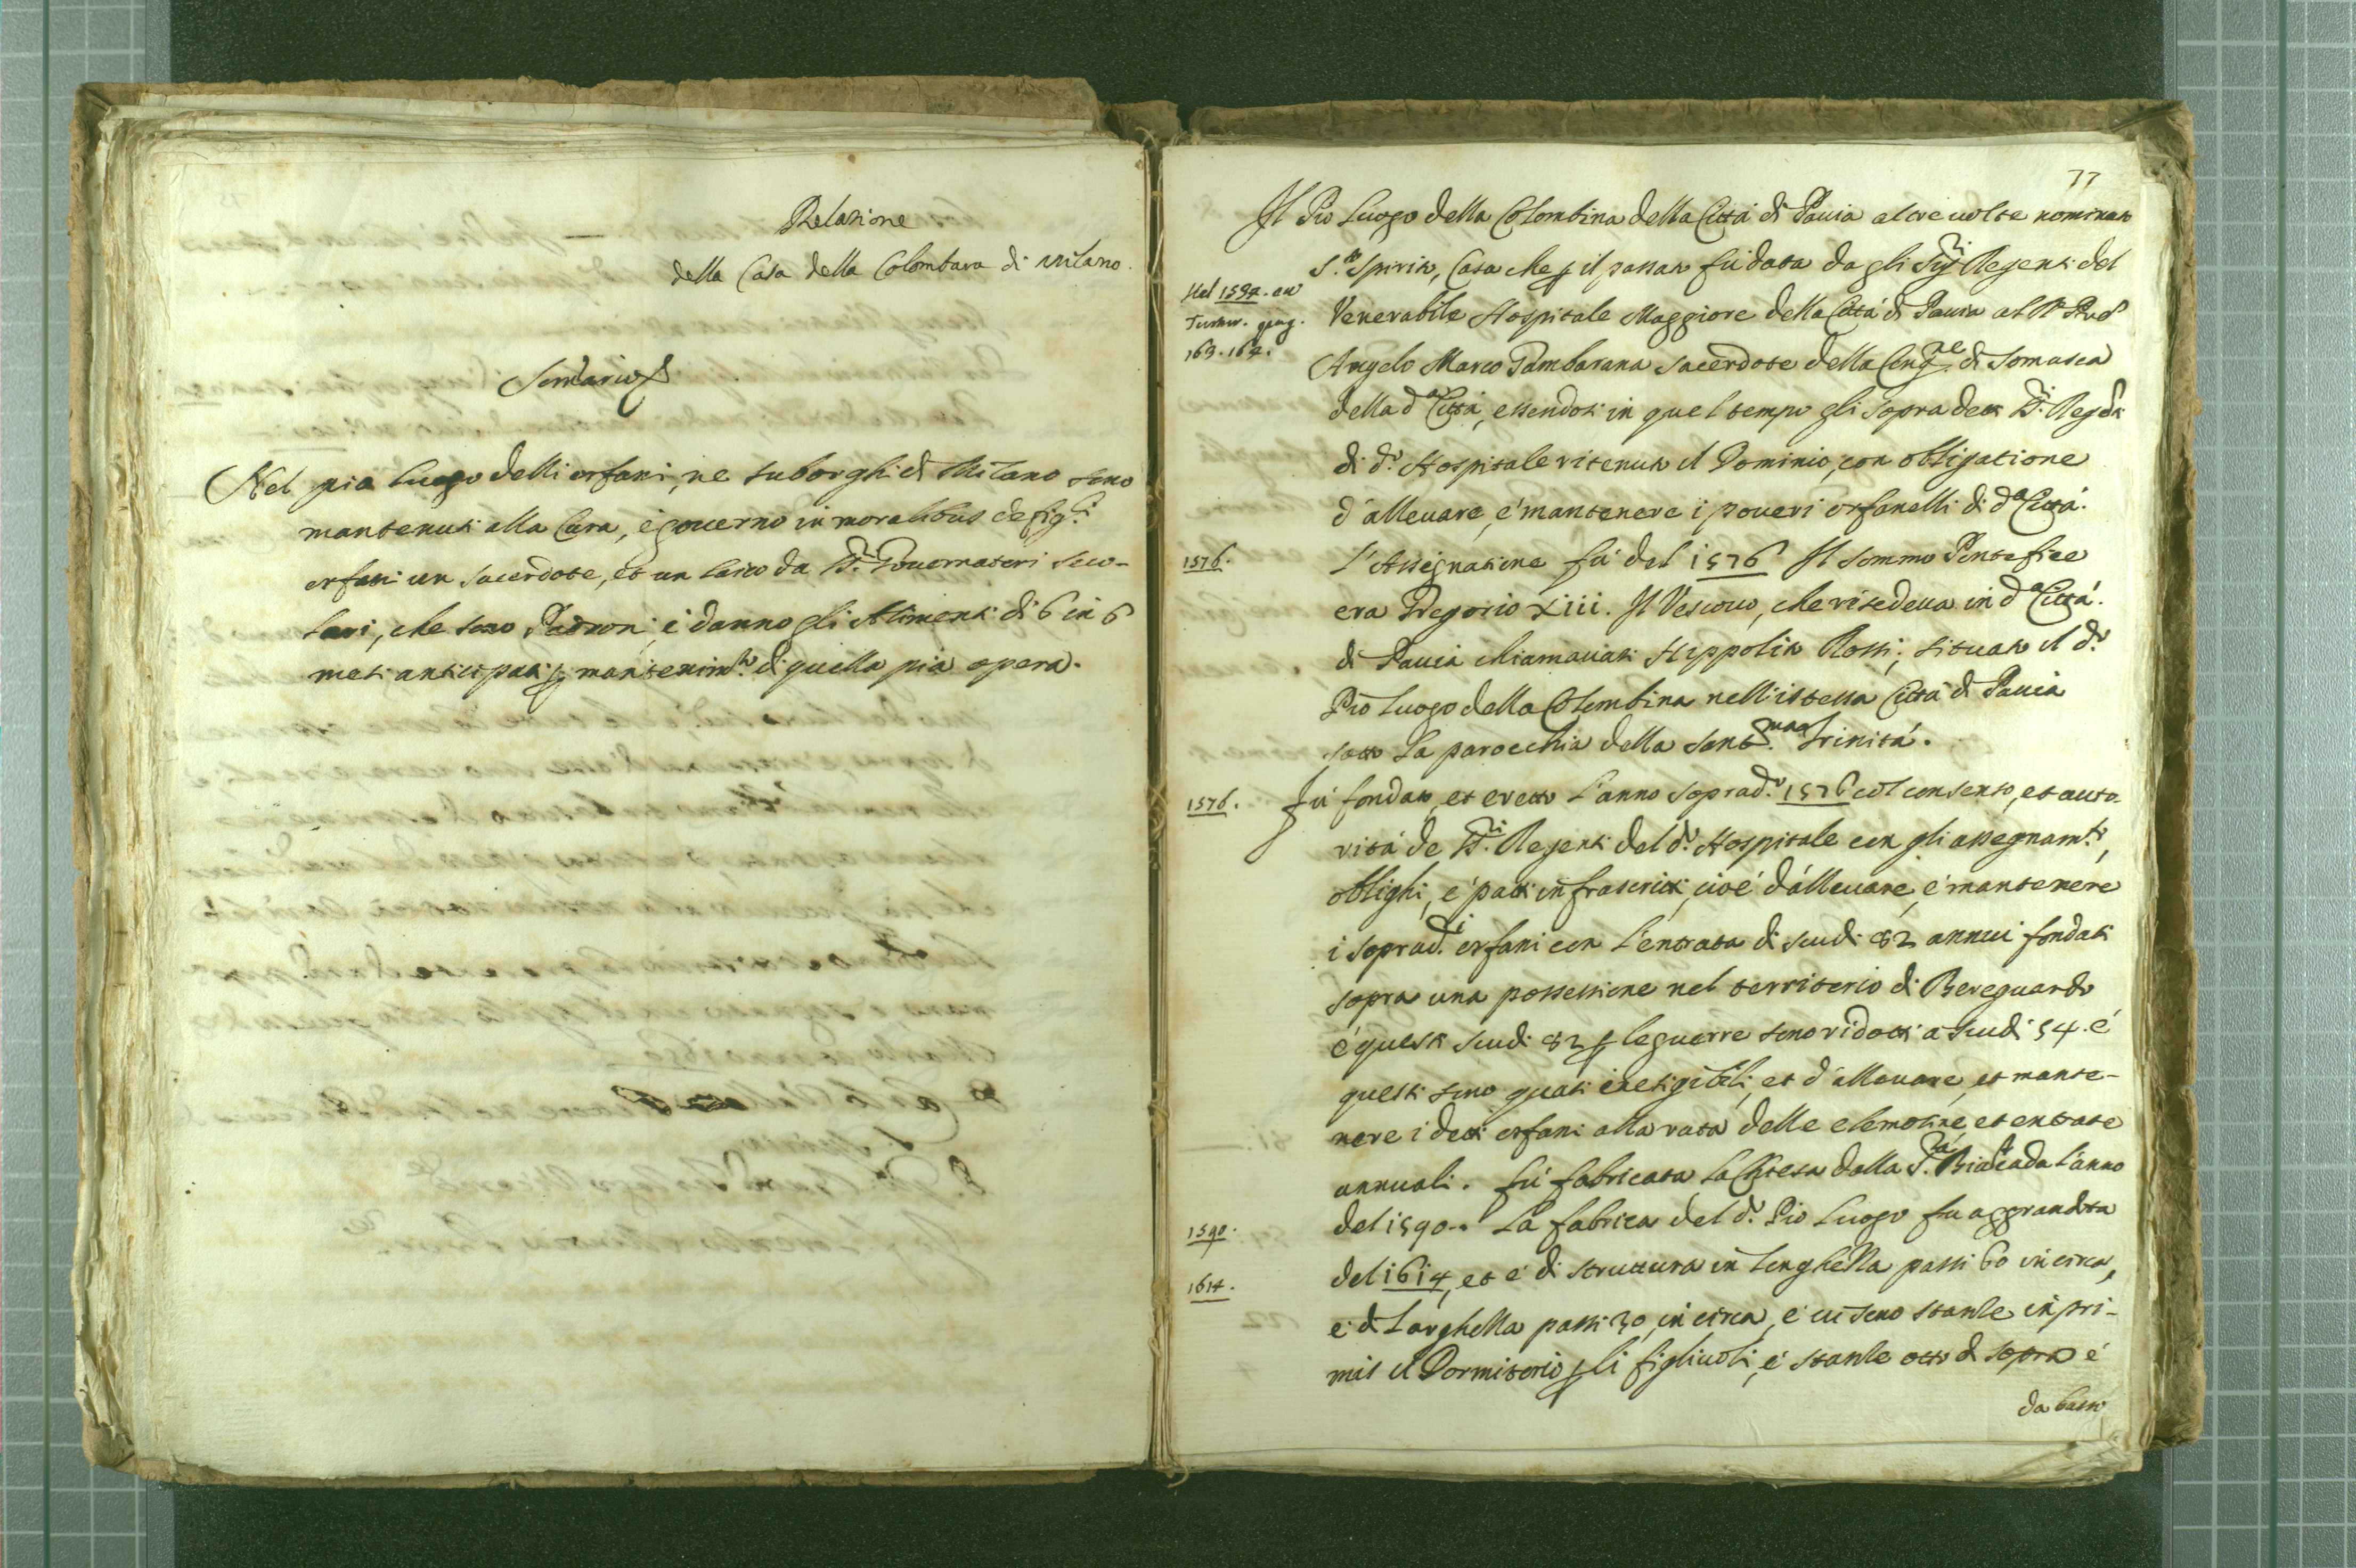 Relatione
della Casa della Colombara di Milano.
Nel pio luogo delli orfani, ne suborghi di Milano sono
mantenuti alla Cura, è governo in moralibus de figli.
orfani un sacerdote, et un laico da SS.ri Governatori seco-
lari, che sono Padroni, è danno gli Alimenti di 6 in 6
mesi anticipati p mantenim.to di quella pia opera.
77
Il Pio Luogo della Colombina della Città di Pavia altre volte nominato
S.to Spirito, Casa che p il passato fù data da gli Sig.ri Regenti del
Venerabile Hospitale Maggiore della Città di Pavia al R. Pad.
Angelo Marco Gambarana sacerdote della Cong.ne di Somasca
della d.a Città, essendosi in quel tempo gli sopradetti SS.ri Reg.ti
di d.o Hospitale ritenuto il Dominio, con obbligatione
d'allevare, è mantenere i poveri orfanelli di d.a Città.
L'Assegnatione fù del 1576 Il sommo Pontefice
era Gregorio XIII. Il Vescovo, che risedeva in d.a Città.
di Pavia chiamavasi Hippolito Rossi; situato il d.o
Pio Luogo della Colombina nell'istessa Città di Pavia
sotto la parocchia della Sant.ma Trinità.
Fù fondato, et eretto l'anno soprad.o 1576 col consenso, et auto-
rità de SS.ri Regenti del d.o Hospitale con gli assegnam.ti,
oblighi, è patti infrascritti, cioè d'allevare, è mantenere
i soprad.i orfani con l'entrata di scudi 82 annui fondati
sopra una possessione nel territorio di Bereguardo
è questi scudi 82 p le guerre sono ridotti a scudi 54. è
questi sono quasi inesigibili, et d'allevare, et mante-
nere i detti orfani alla rata delle elemosine, et entrate
annuali. Fù fabricata la Chiesa dalla S.ra Bia l'anno
del 1590. La fabrica del d.o Pio Luogo fu aggrandita
del 1614, et è di struttura in longhezza passi 60 in circa,
è di larghezza passi 30, in circa, è vi sono stanze in pri-
mis il Dormitorio p li figliuoli, è stanze otto di sopra è
da basso
Nel 1594. ex
Turtur. pag.
163. 164.
1576.
1576.
1590.
1614.